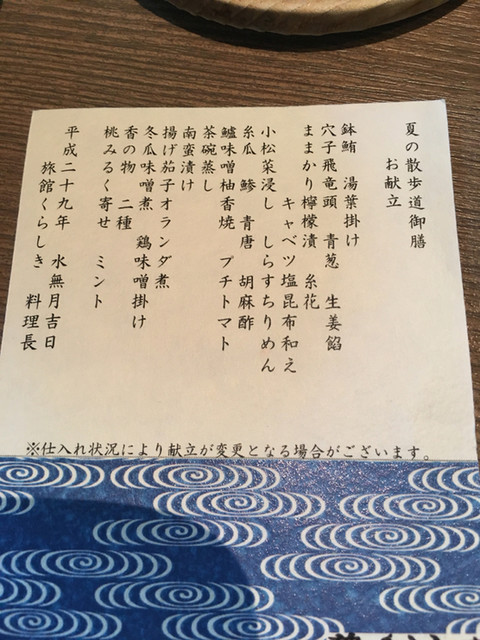 夏の散歩道御膳
お献立
鉢鮪　湯葉掛け
穴子飛竜頭　青葱　生姜餡
ままかり檸檬漬　糸花
キャベツ塩昆布和え
小松菜浸し　しらすちりめん
糸瓜　鯵　青唐　胡麻酢
鱸味噌柚香焼　プチトマト
茶碗蒸し
南蛮漬け
揚げ茄子オランダ煮
冬瓜味噌煮　鶏味噌掛け
香の物　二種
桃みるく寄せ　ミント
平成二十九年　水無月吉日
旅館くらしき　料理長
※仕入れ状況により献立が変更となる場合がございます。